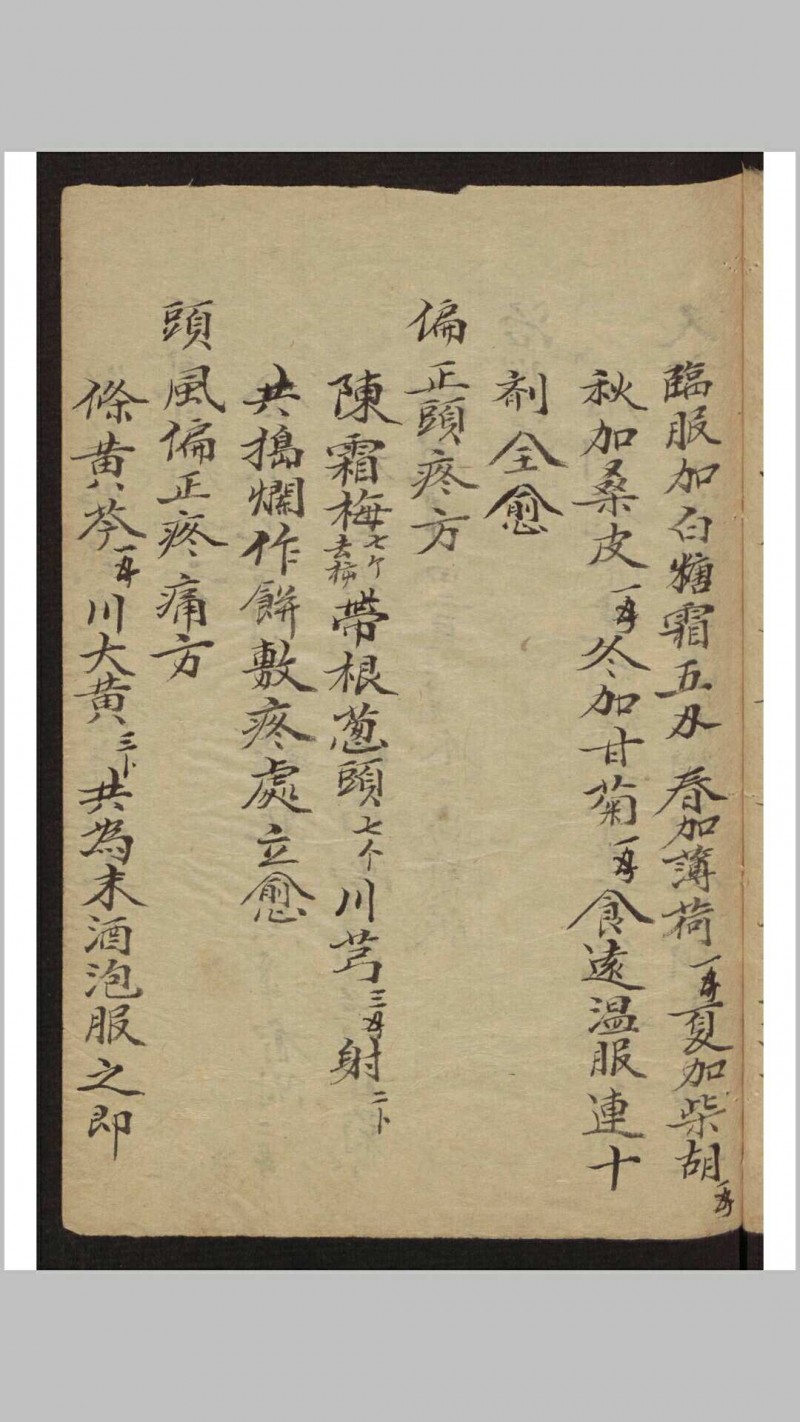 臨服加白糖霜五分 春加薄荷一錢夏加柴胡一錢
秋加桑皮一錢冬加甘菊一錢食遠温服連十
剤全愈
偏正頭疼方
陳霜梅七个去核帶根葱頭七个川芎三錢射二卜
共搗爛作餅敷疼處立愈
頭風偏正疼痛方
條黄芩一錢川大黄三卜共為末酒泡服之即